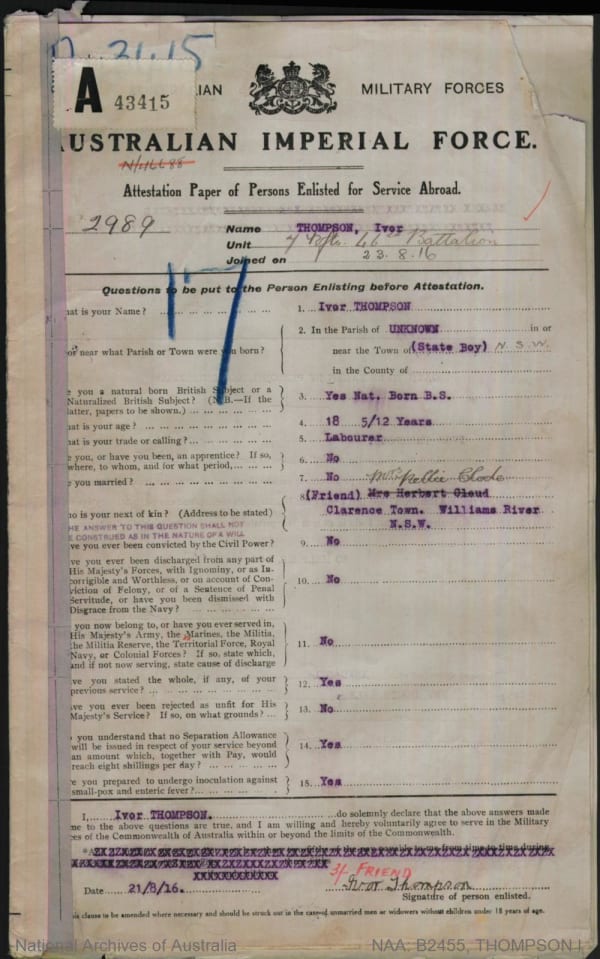 21.15
A 43415
IAN MILITARY FORCES
USTRALIAN IMPERIAL FORCE.
Attestation Paper of Persons Enlisted for Service Abroad.
2989
Name THOMPSON, Ivor
Unit 7 Rfts. 46th Battalion
Joined on 23.8.16
17
Questions to be put to the Person Enlisting before Attestation.
hat is your Name? ... 1. Ivor THOMPSON
or near what Parish or Town were you born? 2. In the Parish of UNKNOWN in or
near the Town of (State Boy) N.S.W.
in the County of
e you a natural born British Subject or a
Naturalized British Subject? (N.B.—If the
latter, papers to be shown.) ... 3. Yes Nat. Born B.S.
hat is your age? ... 4. 18 5/12 Years
hat is your trade or calling? ... 5. Labourer
e you, or have you been, an apprentice? If so,
where, to whom, and for what period, ... 6. No
e you married? ... 7. No
Mrs Nellie Clode
8. (Friend) Mrs Herbert Cloud
ho is your next of kin? (Address to be stated) Clarence Town. Williams River
N.S.W.
HE ANSWER TO THIS QUESTION SHALL NOT
E CONSTRUED AS IN THE NATURE OF A WILL
ve you ever been convicted by the Civil Power? 9. No
ve you ever been discharged from any part of
His Majesty's Forces, with Ignominy, or as In-
corrigible and Worthless, or on account of Con-
viction of Felony, or of a Sentence of Penal
Servitude, or have you been dismissed with
Disgrace from the Navy? ... 10. No
you now belong to, or have you ever served in,
His Majesty's Army, the Marines, the Militia,
the Militia Reserve, the Territorial Force, Royal
Navy, or Colonial Forces? If so, state which,
and if not now serving, state cause of discharge 11. No
ve you stated the whole, if any, of your
previous service? ... 12. Yes
ve you ever been rejected as unfit for His
Majesty's Service? If so, on what grounds? ... 13. No
you understand that no Separation Allowance
will be issued in respect of your service beyond
an amount which, together with Pay, would
reach eight shillings per day? ... 14. Yes
e you prepared to undergo inoculation against
small-pox and enteric fever? ... 15. Yes
I, Ivor THOMPSON. do solemnly declare that the above answers made
me to the above questions are true, and I am willing and hereby voluntarily agree to serve in the Military
ces of the Commonwealth of Australia within or beyond the limits of the Commonwealth.
FRIEND
Date 21/8/16. Ivor Thompson
Signature of person enlisted.
is clause to be amended where necessary and should be struck out in the case of unmarried men or widowers without children under 18 years of age.
National Archives of Australia NAA: B2455, THOMPSON I